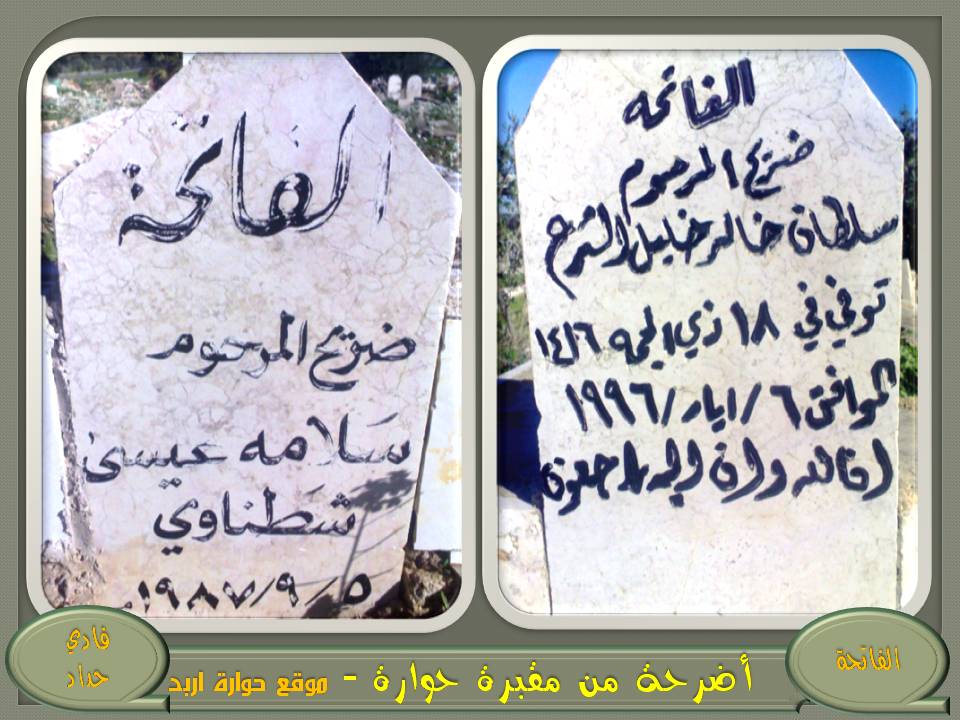 الفاتحه
ضريح المرحوم
سلطان خالد خليل الشرع
توفي في ١٨ ذي الحجه ١٤١٦
الموافق ٦/ايار/١٩٩٦
انا لله وان اليه راجعون
الفاتحة
ضريح المرحوم
سَلامه عيسى
شطناوي
١٩٨٧/٩/٥
فادي
حداد
أضرحة من مقبرة حوارة - موقع حوارة اربد
الفاتحة